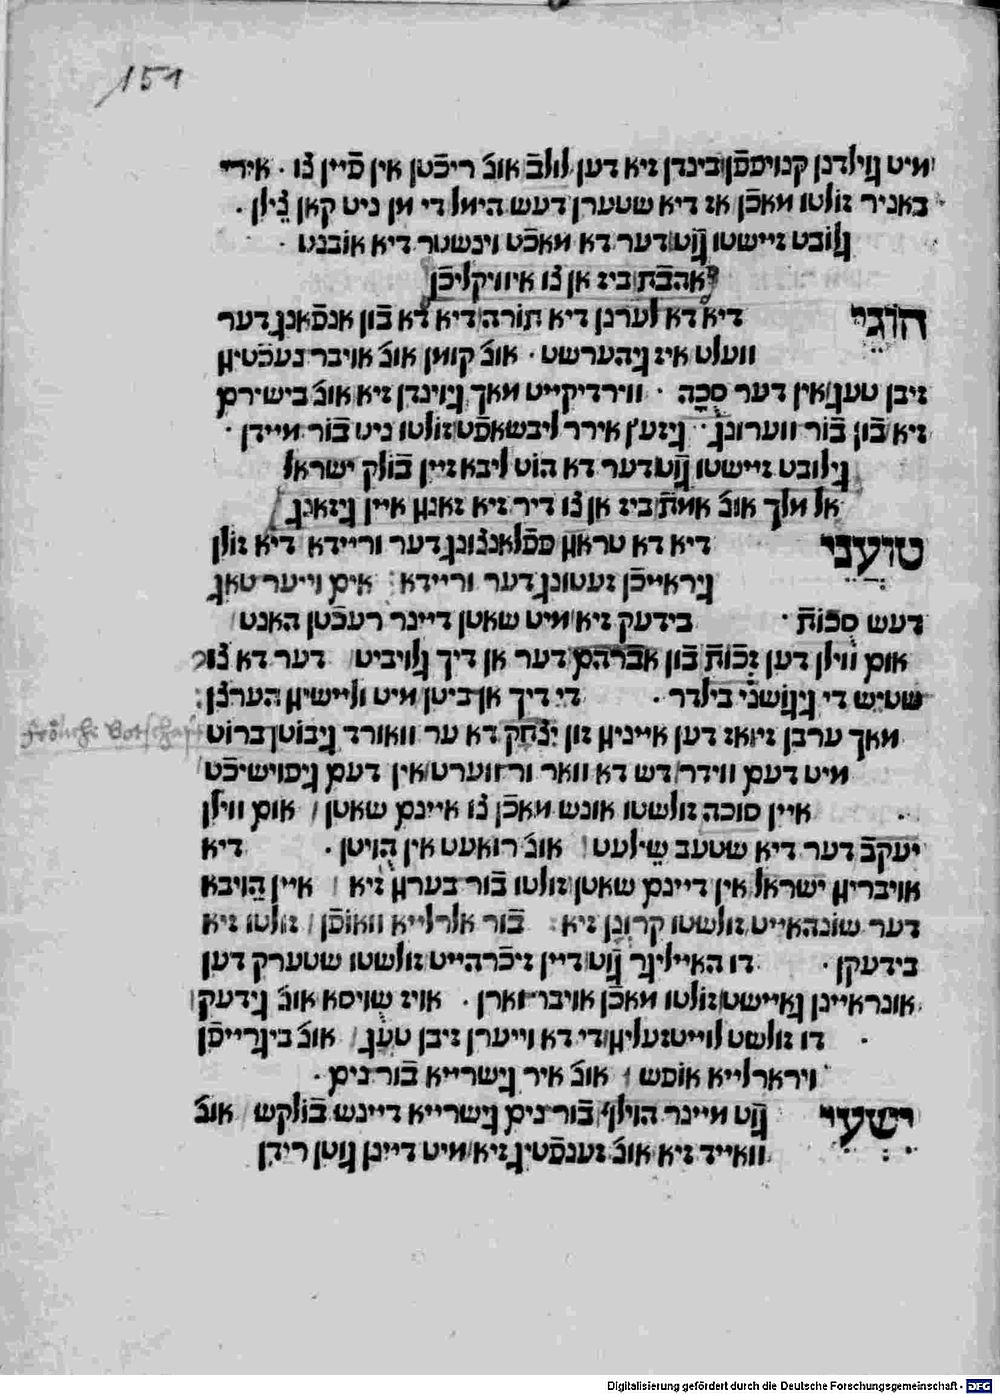 151
מיט גוילדנן קנויפפֿן בינדן זיא דען לולבֿ אונ׳ ריכֿטן אין פֿיין צו · אירי
באניר זולטו מאכֿן אז דיא שטערן דעש הימל די מן ניט קאן צילן ·
גלובט זיישטו גוט דער דא מאכֿט וינשטר דיא אובנט ·
אהבת ביז אן צו איוויקליכֿן
הוגי דיא דא לערנן דיא תורה דיא דא בֿון אנפֿאנג דער
וועלט איז גיהערשט · אונ׳ קומן אונ׳ אויבר נעכֿטיג
זיבן טעג אין דער סכה · ווירדיקייט מאך גווינדן זיא אונ׳ בישירם
זיא בֿון בֿור ווערונג · גיזעץ אירר ליבשאפֿט זולטו ניט בֿור מיידן ·
גילובט זיישטו גוט דער דא הוט ליבא זיין בֿולק ישראל
אל מלך אונ׳ אמת ביז אן צו דיר זיא זאגן איין גיזאנג
טועני דיא דא טראגן פפֿלאנצונג דער ורייד׳א דיא זולן
גיראייכֿן זעטונג דער ורייד׳א אים וייער טאג
דעש סכות · בידעק זיא מיט שאטן דיינר רעכֿטן האנט
אום ווילן דען זכות בֿון אברהם דער אן דיך גלויביט דער דא צו
שטיש די גיגושני בילדר · די דיך אן ביטן מיט ולייישיג הערצן
מאך ערבן זיואז דען אייניג זון יצחק דא ער וואורד גיבוטן ברוט
frölich Botschaft
מיט דעם ווידר דש דא וואר ורזוערט אין דעם גיפוישיכֿט
איין סוכה זולשטו אונש מאכֿן צו איינם שאטן אום ווילן
יעקב דער דיא שטעב שילעט אונ׳ רואעט אין הויטן · דיא
אויבריג ישראל אין דיינם שאטן זולטו בֿור בערג זיא איין הויבא
דער שונהאייט זולשטו קרונן זיא בֿור אלרלייא וואופֿן זולטו זיא
בידעקן · דו האייליגר גוט דיין זיכֿרהייט זולשטו שטערק דען
אונראיינן גאיישט זולטו מאכֿן אויבר וארן · אויז שויסא אונ׳ גידעק
דו זולשט לוייטזעליג די דא וייערן זיבן טעג אונ׳ ביגרייפֿן
וירארלייא אופש אונ׳ איר גישרייא בֿור נים ·
ישעי גוט מיינר הוילף בֿור נים גישרייא דיינש בֿולקש אונ׳
וואייד זיא אונ׳ זענפֿטיג זיא מיט דיינן גוטן רידן
Digitalisierung gefördert durch die Deutsche Forschungsgemeinschaft - DFG